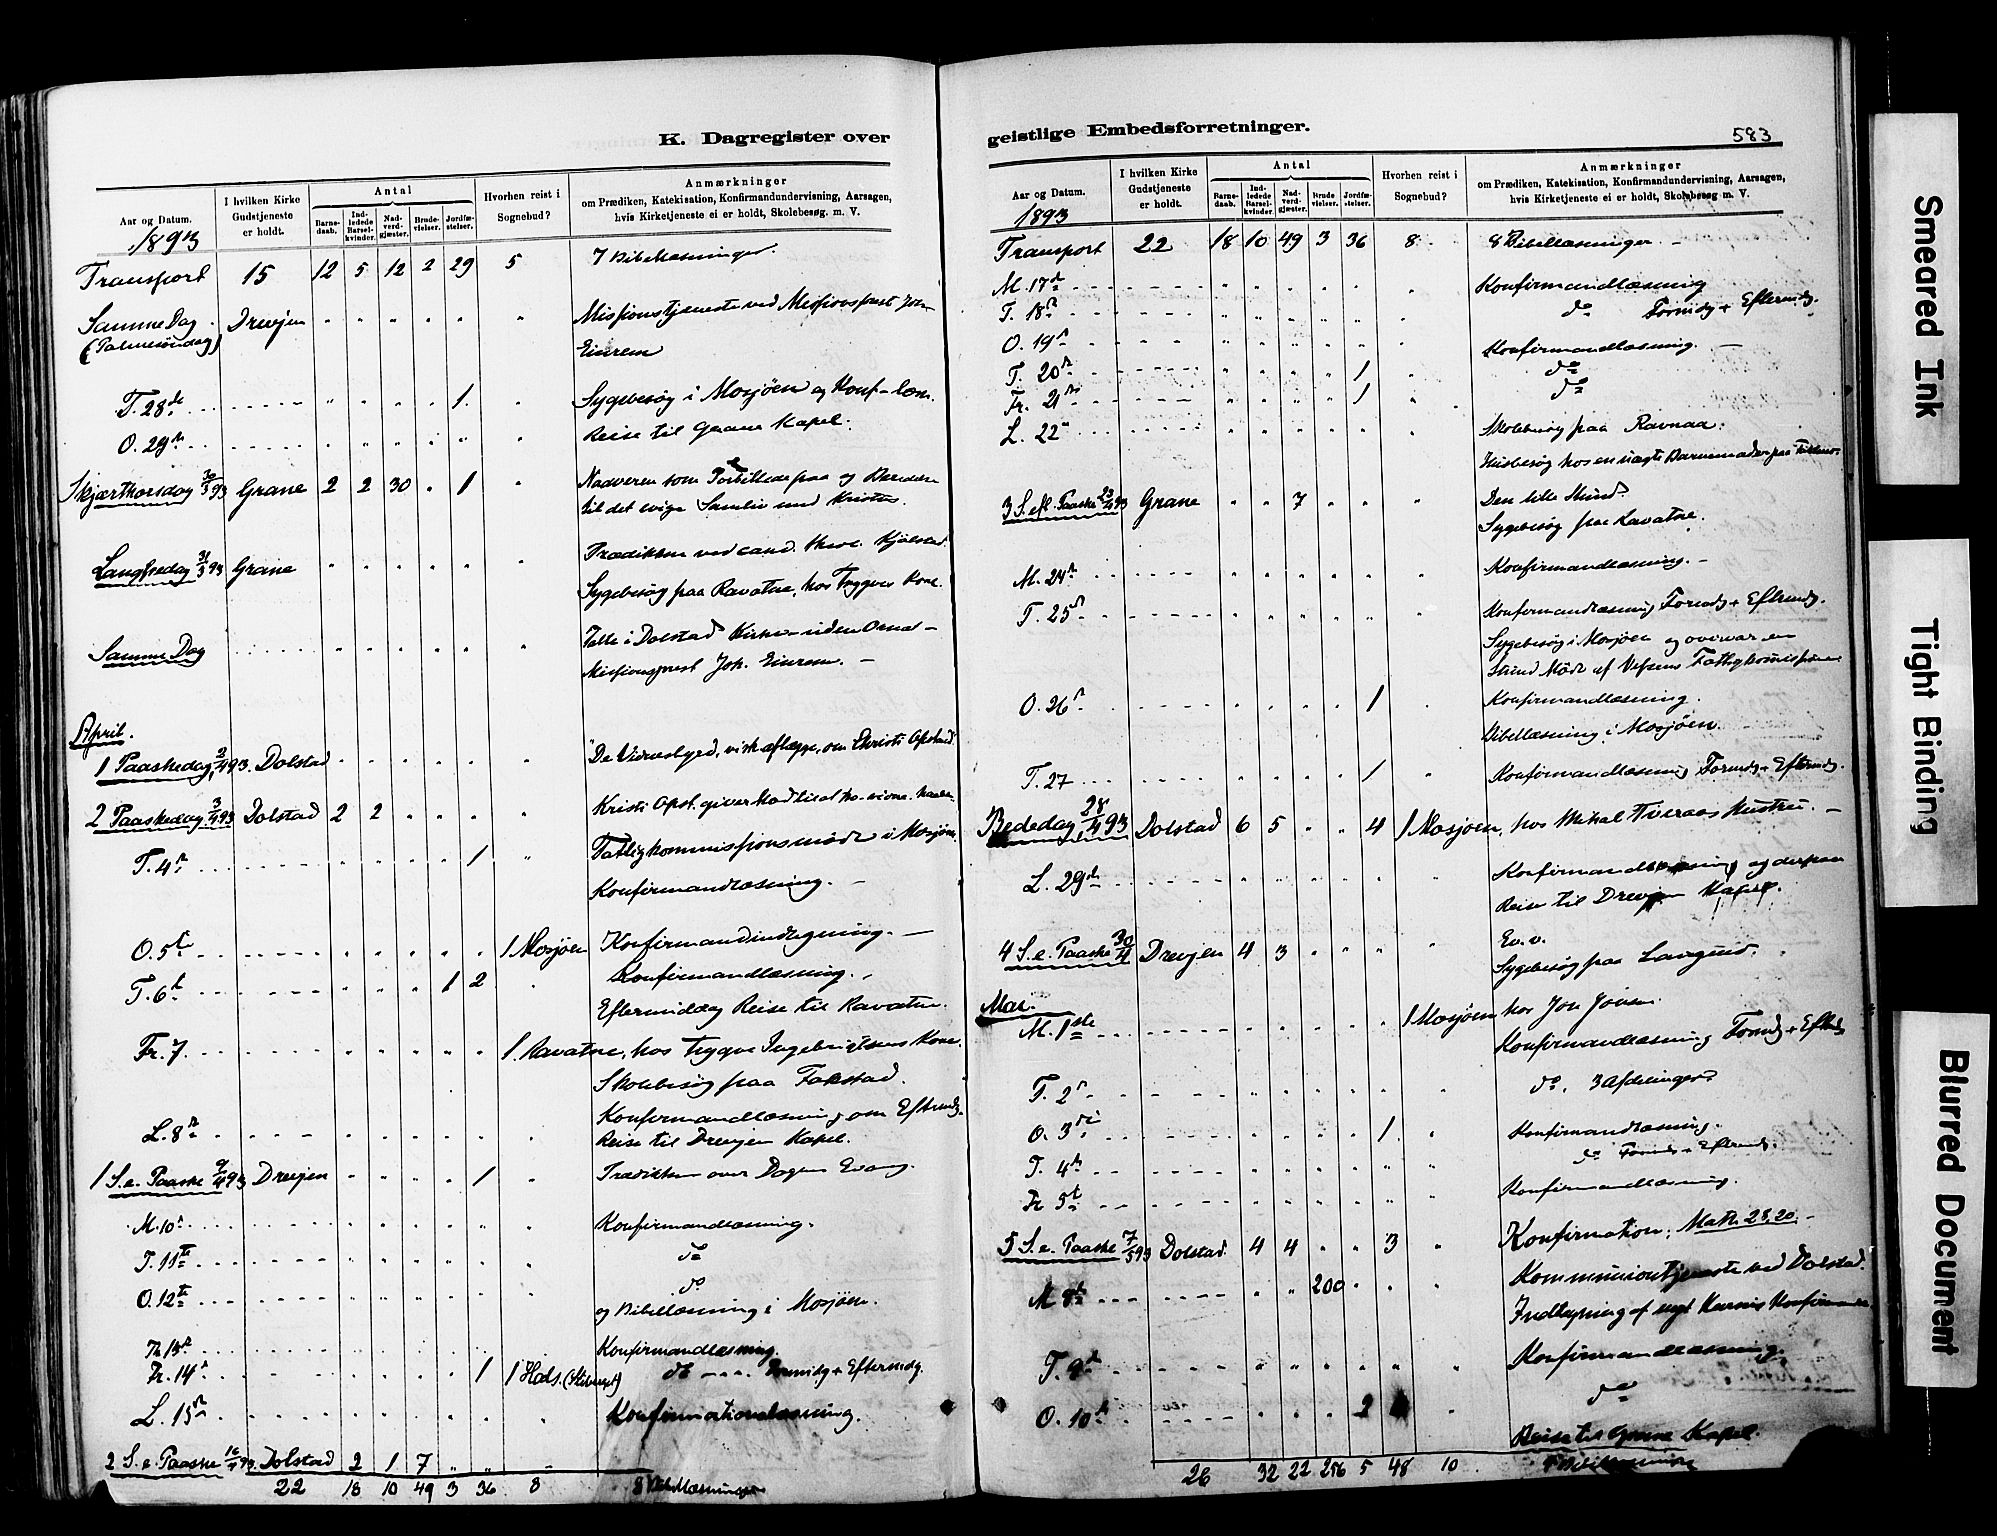 K. Dagregister over
Aar og Datum.
1893
I hvilken Kirke Gudstjeneste er holdt.
Antal
Barnedaab.
Indledede Barselkvinder.
Nadverdgjæster.
Brudevielser.
Jordfæstelser.
Hvorhen reist i Sognebud?
Anmærkninger
om Prædiken, Katekisation, Konfirmandundervisning, Aarsagen,
hvis Kirketjeneste ei er holdt, Skolebesøg. m. V.
Transport 15 12 5 12 2 29 5 7 Bibellæsninger.
Samme Dag Drevjen " " " " " " Missionstjeneste ved Missionsprest Joh.
(Palmesöndag) Einrem
T. 28de " " " " 1 " Sygebesøg i Mosjöen og Konf-læsn.
O. 29de " " " " " " Reise til Grane Kapel.
Skjærthorsdag 30/3 93 Grane 2 2 30 " 1 " Nadveren som Forbillede paa og
til det evige Samliv med Kristus.
Langfredag 31/3 93 Grane " " " " " " Prædiken ved cand. theol. Kjölstad.
Sygebesøg paa Ravatne, hos Trygves Kone.
Samme Dag " " " " " " Talte i Dolstad Kirke - uden Ornat -
Missionsprest Joh. Einrem. -
April.
1 Paaskedag 2/4 93. Dolstad " " " " " " De Vidnesbyrd, vi skal lægge, om Christi Opstand.
2 Paaskedag 3/4 93 Dolstad 2 2 " " " " Kristi Opst. giver
T. 4de " " " " 1 " Fattigkommissionsmøde i Mosjöen
Konfirmandlæsning. -
O. 5te " " " " " 1 Mosjöen Konfirmandindtegning. -
T. 6te " " " 1 2 " Konfirmandlæsning.
Eftermiddag Reise til Ravatne.
Fr. 7. " " " " " 1 Ravatne, hos Trygve Ingebrigtsens Kone.
Skolebesøg paa Fokstad.
Konfirmandlæsning, om Eftermdg.
L. 8de " " " " " " Reise til Drevjen Kapel.
1 S. e. Paaske 9/4 93 Drevjen " " " " 1 " Prædiken over Dagens Evang.
M. 10de " " " " " " Konfirmandlæsning.
T. 11te " " " " " " do
O. 12te " " " " " " do
og Bibellæsning i Mosjöen.
Th 13de " " " " " " Konfirmandlæsning.
Fr. 14de " " " " 1 1 Hals. do - - - Formidg + Eftermdg.
L. 15de " " " " " " Konfirmationslæsning.
2 S. e. Paaske 16/4 93. Dolstad 2 1 7 " " "
22 18 10 49 3 36 8 8 Bibellæsninger
geistlige Embedsforretninger.
583
Aar og Datum.
1893
I hvilken Kirke Gudstjeneste er holdt.
Antal
Barnedaab.
Indledede Barselkvinder.
Nadverdgjæster.
Brudevielser.
Jordfæstelser.
Hvorhen reist i Sognebud?
Anmærkninger
om Prædiken, Katekisation, Konfirmandundervisning, Aarsagen,
hvis Kirketjeneste ei er holdt, Skolebesøg, m. V.
Transport 22 18 10 49 3 36 8 8 Bibellæsninger -
M. 17de " " " " " " Konfirmandlæsning
T. 18de " " " " " " do Formdg + Eftermdg.
O. 19de " " " " " " Konfirmandlæsning. -
T. 20de " " " " 1 " do
Fr. 21de " " " " 1 " do
L. 22de " " " " " " Skolebesøg paa Ravnaa.
Husbesøg hos en uægte Barnemoder paa
3 S. eft. Paaske 23/4 93 Grane " " 7 " " " Den lille Stund.
Sygebesøg paa Ravatne.
M. 24de " " " " " " Konfirmandlæsning. -
T. 25de " " " " " " Konfirmandlæsning Formdg + Eftermdg.
Sygebesøg i Mosjöen og overvar en
Stund Möde af Vefsens Fattigkomission
O. 26de " " " " 1 " Konfirmandlæsning.
Bibellæsning i Mosjöen.
T. 27 " " " " 1 " Konfirmandlæsning Formdg + Eftermdg.
Bededag 28/4 93 Dolstad 6 5 " " 4 1 Mosjöen, hos Mikal Hveraas Hustru. -
L. 29de " " " " " " Konfirmandlæsning og derpaa
Reise til Drevjen Kapel.
4 S. e. Paaske 30/4 Drevjen 4 3 " " " " Ev. v.
Sygebesøg paa
Mai.
M. 1ste " " " " " 1 Mosjöen hos Jon Jönsen.
Konfirmandlæsning Formdg + Eftmdg
T. 2de " " " " " " do, 3 Afdelinger.
O. 3die " " " " 1 " Konfirmandlæsning.
T. 4de " " " " " " do Formdg + Eftermdg.
Fr 5te " " " " " " Konfirmandlæsning.
5 S. e. Paaske 7/5 93 Dolstad. 4 4 " " 3 " Konfirmation. Math. 28,20. -
M 8de " " 200 " " " Kommuniontjeneste ved Dolstad.
Indtegning af nyt Konfirmander
T. 9de " " " " " " Konfirmandlæsning.
O. 10de " " " " 2 " do
Reise til Grane Kapel.
26 32 22 256 5 48 10 Bibellæsninger
Smeared Ink
Tight Binding
Blurred Document